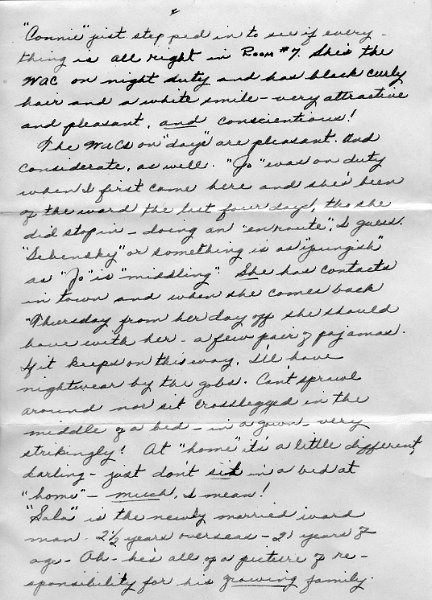 2
"Connie" just stepped in to see if every-
thing is all right in Room #7. She's the
Wac on night duty and has black curly
hair and a white smile - very attractive
and pleasant, and conscientious!
The Wacs on "days" are pleasant. And
considerate, as well. "Jo" was on duty
when I first came here and she's been
of the ward the last four days, tho she
did stop in - doing an "en route", I guess.
"Sebensky" or something is as "youngish"
as "Jo" is "middling". She has contacts
in town and when she comes back
Thursday from her day off she should
have with her - a few pair of pajamas.
If it keeps on this way, I'll have
nightwear by the gobs. Can't sprawl
around nor sit crosslegged in the
middle of a bed - in a gown - very
strikingly! At "home" it's a little different,
darling - just don't sit in a bed at
"home" - much, I mean!
"Sala" is the newly married ward
man - 2½ years overseas - 21 years of
age - Oh - he's all of a picture of re-
sponsibility for his growing family.